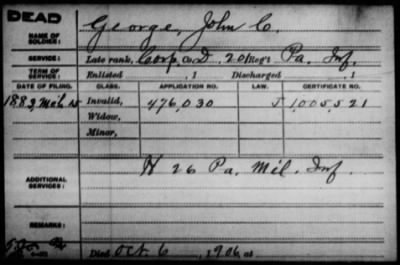 DEAD
George, John C.
NAME OF SOLDIER:
SERVICE: Late rank, Corp, Co. D, 201 Reg't Pa. Inf.
TERM OF SERVICE: Enlisted , 1 Discharged , 1
DATE OF FILING. CLASS. APPLICATION NO. LAW. CERTIFICATE NO.
1883, Mch 15 Invalid, 476,030 J 1,005,521
Widow,
Minor,
ADDITIONAL SERVICES: H 26 Pa. Mil. Inf.
REMARKS:
Died Oct. 6, 1906, at